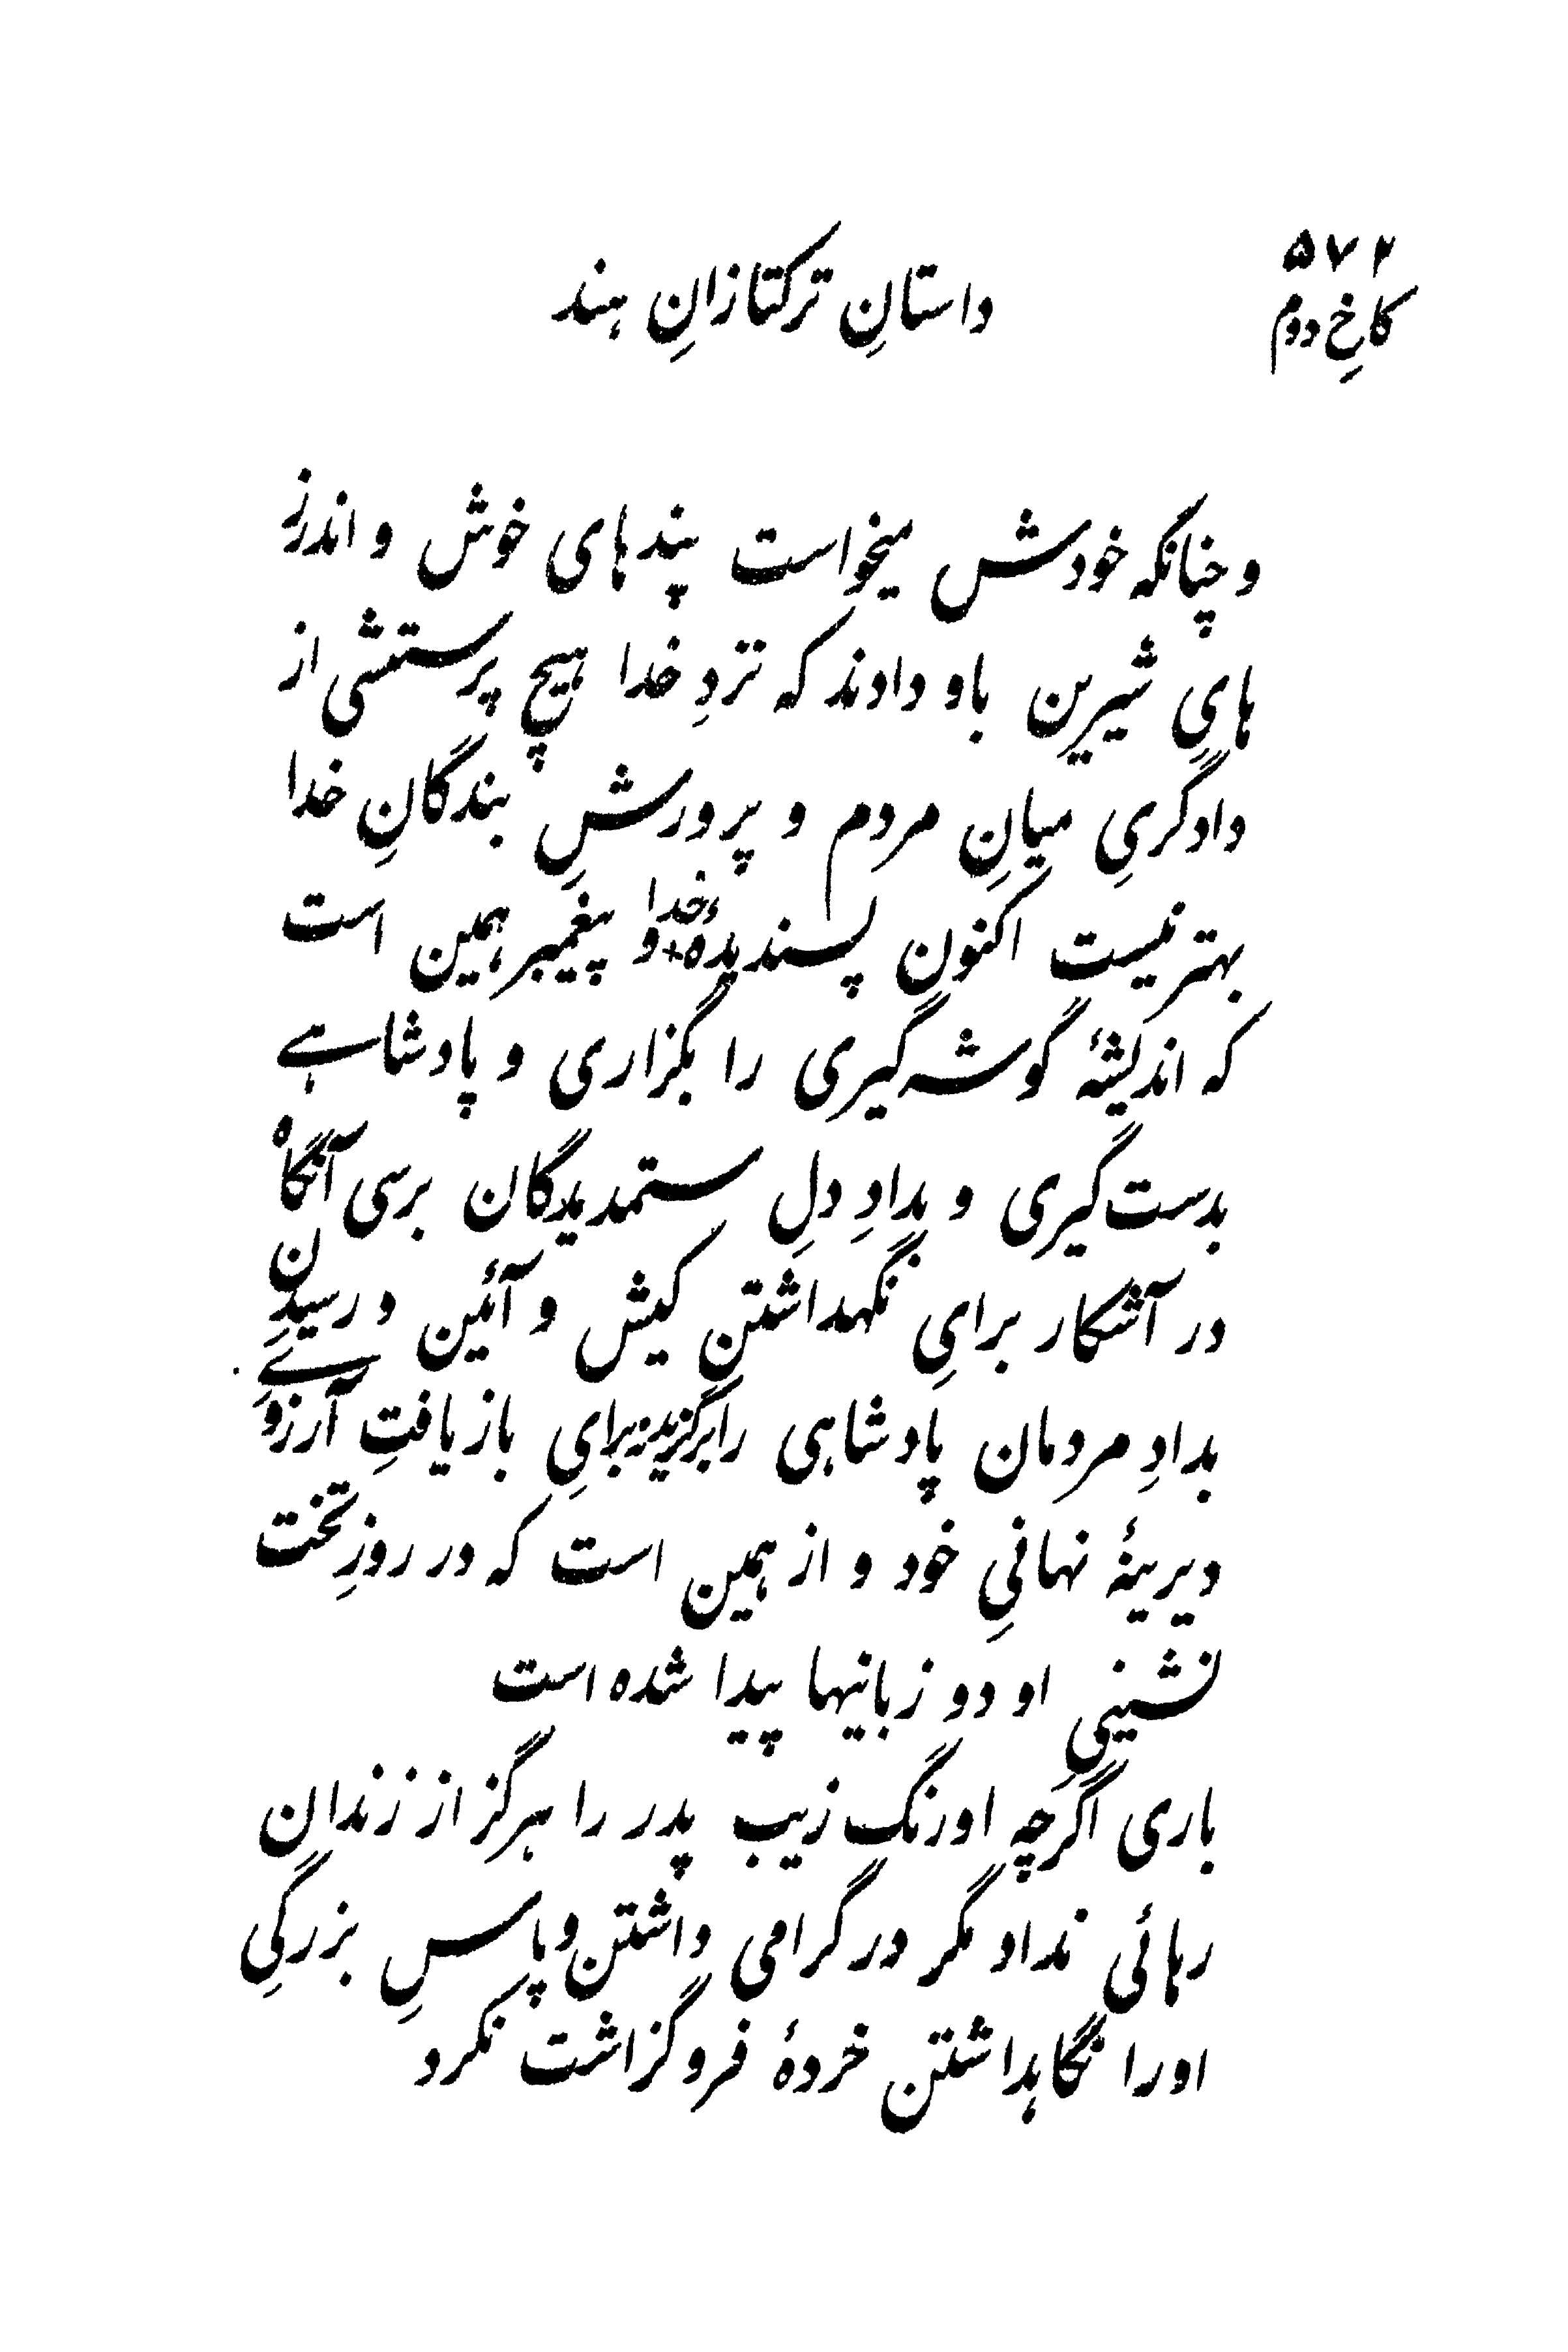 ۵۷۲
داستانِ ترکتازانِ هند
کاخِ دوم
و چنانکه خودش میخواست پندهای خوش و اندرز
هایِ شیرین باو دادند که نزدِ خدا هیچ پرستشی از
دادگریِ میانِ مردم و پرورشِ بندگانِ خدا
بهتر نیست اکنون پسندیدهٔ خدا و پیغمبر همین است
که اندیشهٔ گوشه گیری را بگزاری و پادشاهے
بدست گیری و بدادِ دلِ ستمدیدگان برسی آنگاه
در آشکار برایِ نگهداشتنِ کیش و آئین و رسیدنِ
بدادِ مردمان پادشاهی را برگزید نه برایِ بازیافتِ آرزوےِ
دیرینهٔ نهانیِ خود و از همین است که در روزِ تخت
نشینیِ او دو زبانیها پیدا شده است
باری اگرچه اورنگ زیب پدر را هرگز از زندان
رهائی نداد مگر در گرامی داشتن و پاسِ بزرگیِ
اورا نگاهداشتن خردهٔ فروگزاشت نکرد